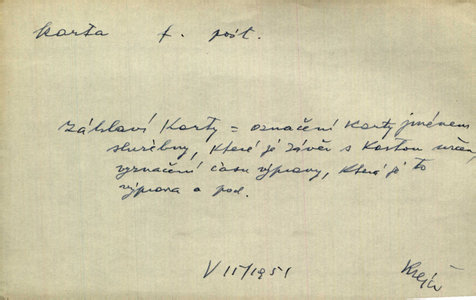 karta f. pošt.
Záhlaví karty = označení karty jménem
služebny, které je závěr s kartou určen,
vyznačení času výpravy, která je to
výprava a pod.
V 11/1951
Krejčí